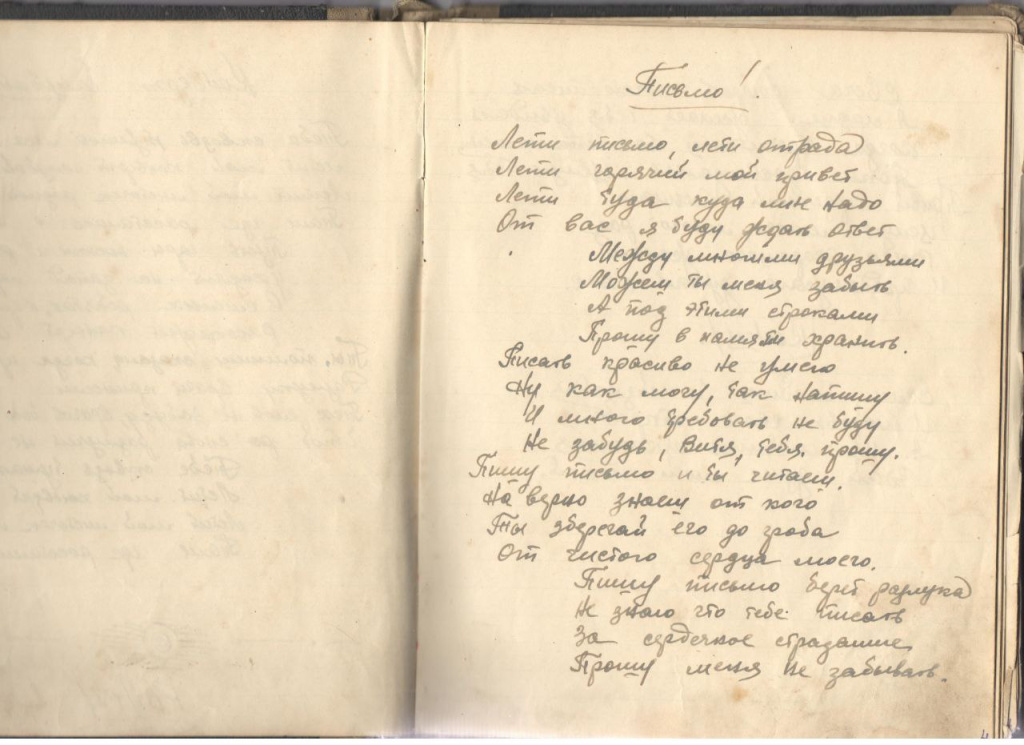 Письмо!
Лети письмо, лети отрада
Лети горячий мой привет
Лети буда куда мне надо
От вас я буду ждать ответ
Между многими друзьями
Можеш ты меня забыть
А под этими строками
Прошу в памяти хранить.
Писать красиво не умею
Ну как могу, так напишу
И много требовать не буду
Не забудь, Витя, тебя прошу.
Пишу письмо и ты читаеш.
На верно знаеш от кого
Ты зберегай его до гроба
От чистого сердца моего.
Пишу письмо берет разлука
Не знаю что тебе писать
За сердечное страдание
Прошу меня не забывать.
4